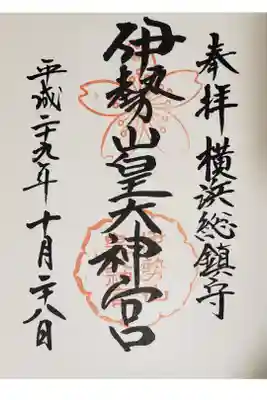 奉拝 横浜総鎮守
伊勢山皇大神宮
平成二十九年十月二十八日